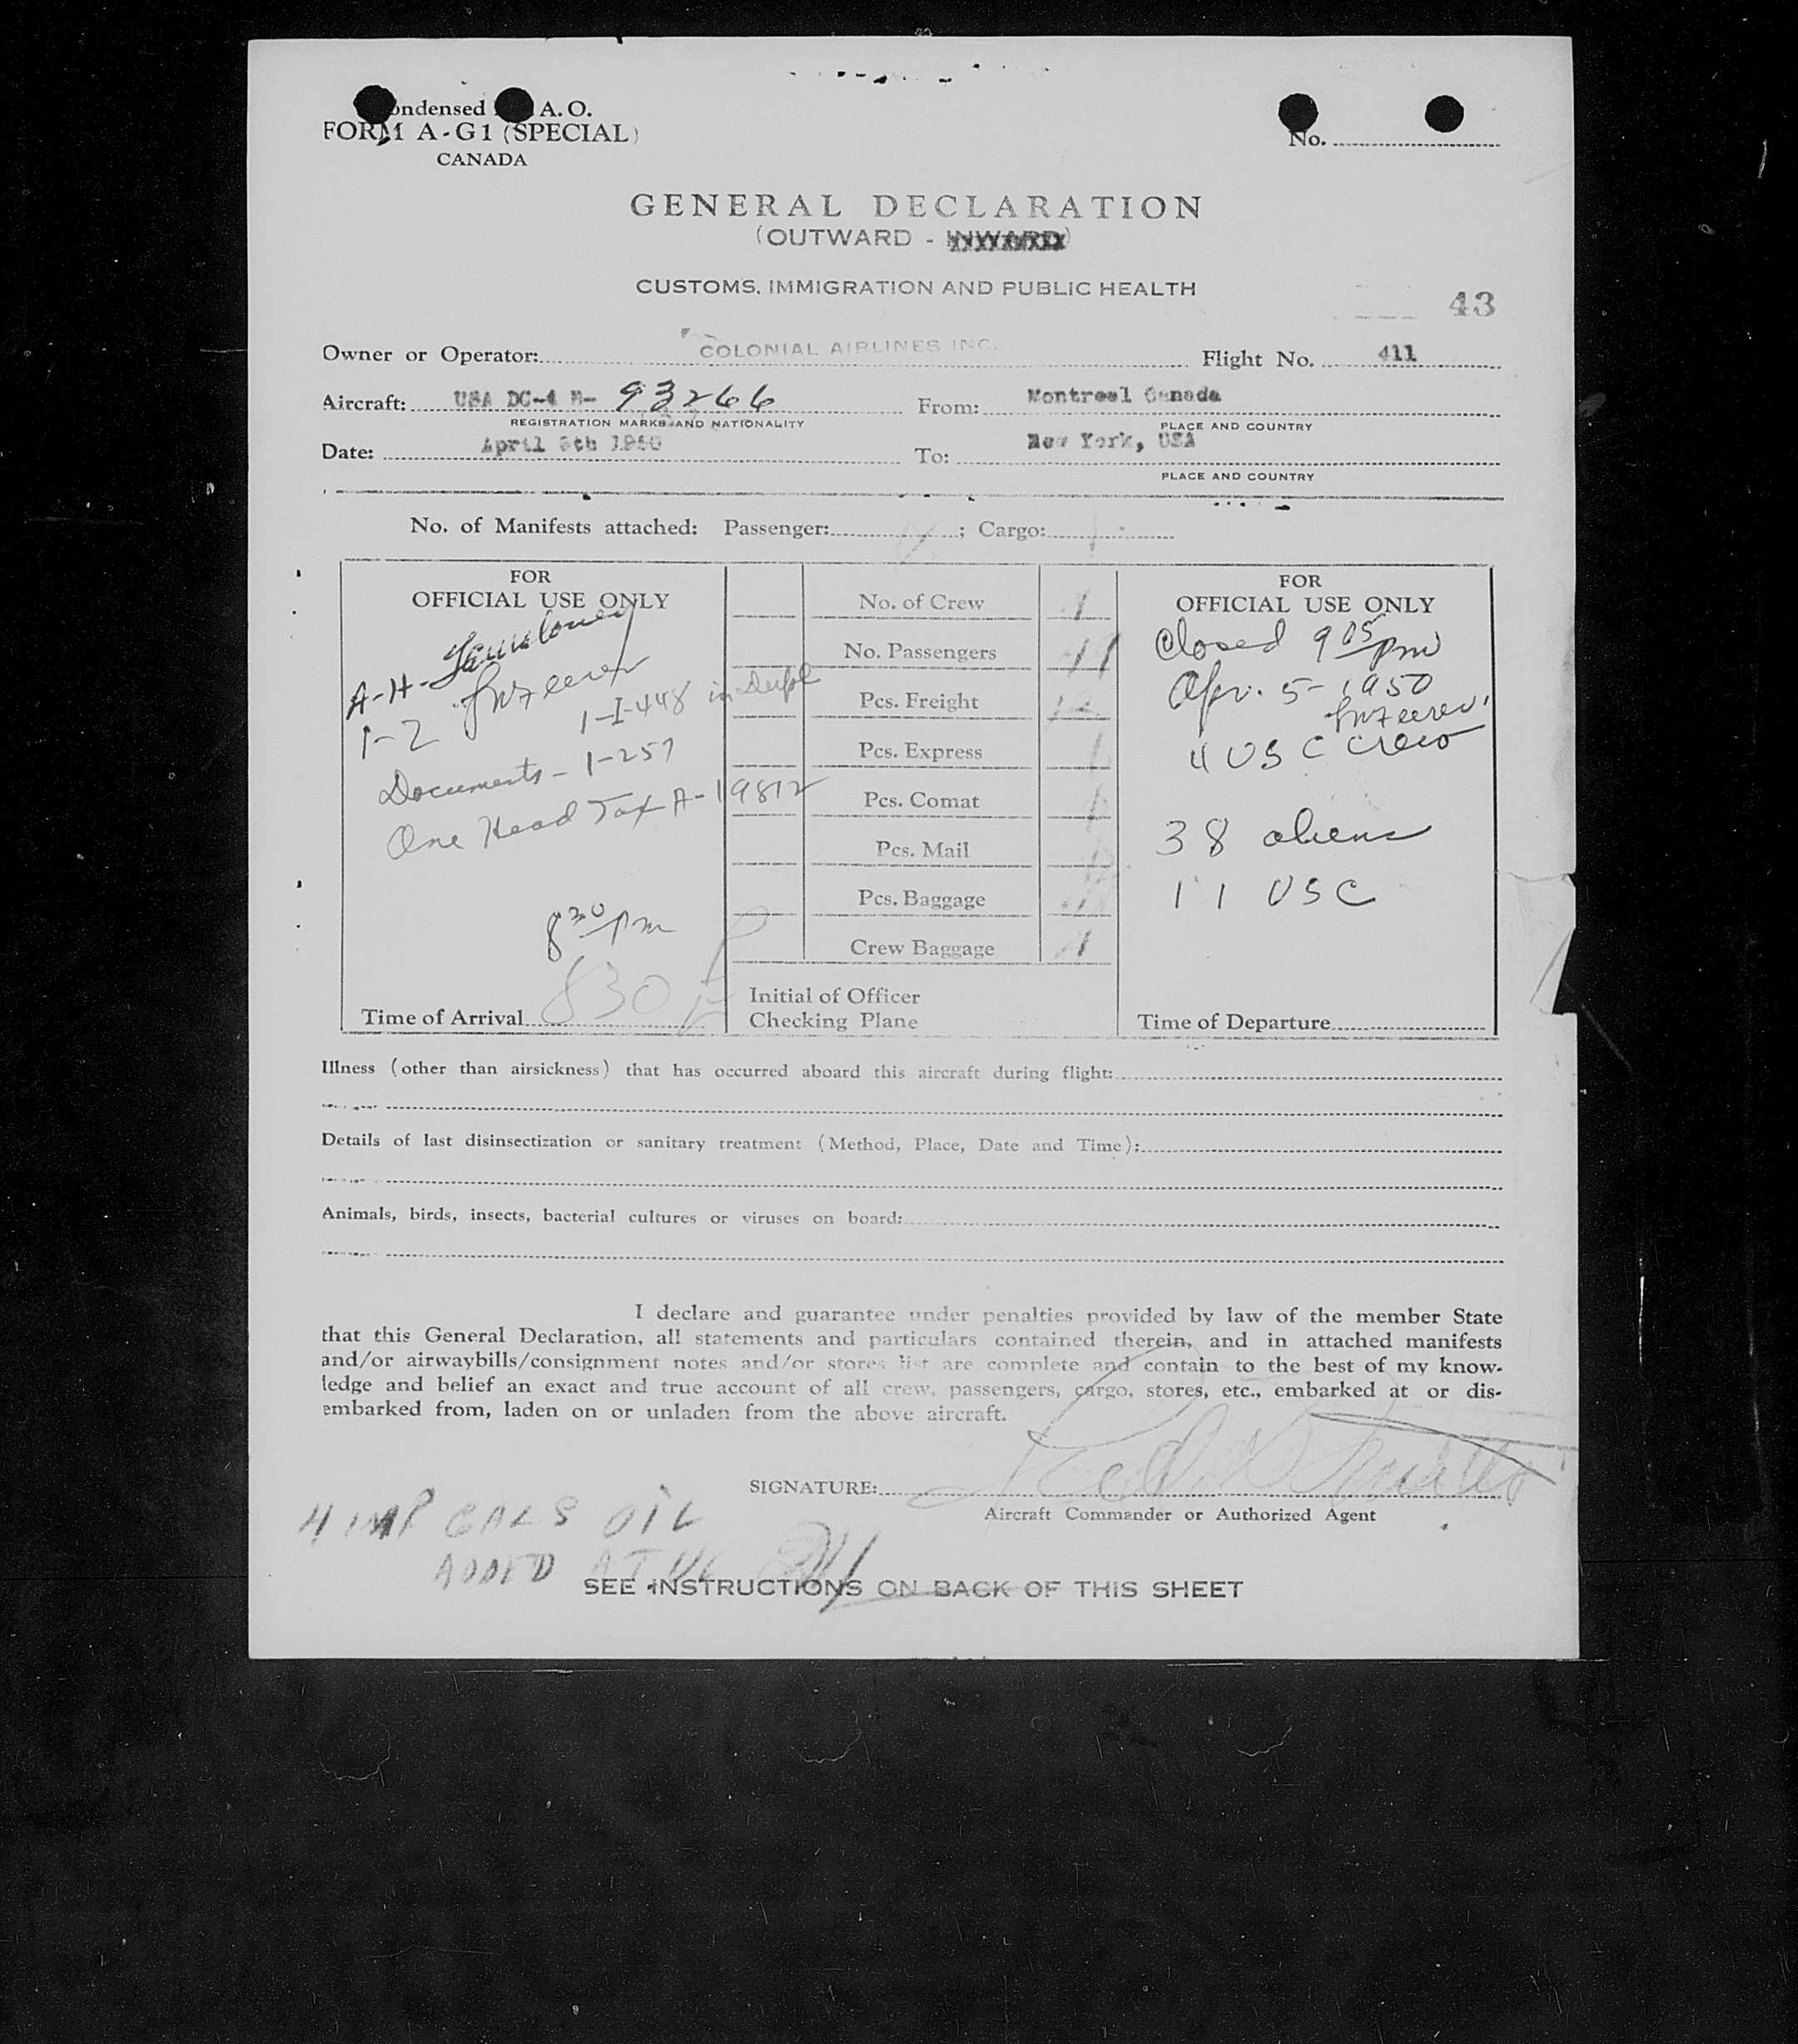 Condensed A. O.
FORM A-G1 (SPECIAL)
CANADA
No.
GENERAL DECLARATION
(OUTWARD - INWARD)
CUSTOMS, IMMIGRATION AND PUBLIC HEALTH
43
Owner or Operator: COLONIAL AIRLINES INC. Flight No. 411
Aircraft: USA DC-4 N- 93266 From: Montreal Canada
REGISTRATION MARKS AND NATIONALITY PLACE AND COUNTRY
Date: April 5th 1950 To: New York, USA
PLACE AND COUNTRY
No. of Manifests attached: Passenger: ; Cargo:
FOR
OFFICIAL USE ONLY
A-H-
1-2
1-I-448 in
Documents - 1-257
One Head Tax A-19812
8 30 pm
Time of Arrival 830
No. of Crew
No. Passengers
Pcs. Freight
Pcs. Express
Pcs. Comat
Pcs. Mail
Pcs. Baggage
Crew Baggage
Initial of Officer
Checking Plane
FOR
OFFICIAL USE ONLY
Closed 9 05 pm
Apr. 5-1950
4 USC Crew
38 aliens
11 USC
Time of Departure
Illness (other than airsickness) that has occurred aboard this aircraft during flight:
Details of last disinsectization or sanitary treatment (Method, Place, Date and Time):
Animals, birds, insects, bacterial cultures or viruses on board:
I declare and guarantee under penalties provided by law of the member State
that this General Declaration, all statements and particulars contained therein, and in attached manifests
and/or airwaybills/consignment notes and/or stores list are complete and contain to the best of my know-
ledge and belief an exact and true account of all crew, passengers, cargo, stores, etc., embarked at or dis-
embarked from, laden on or unladen from the above aircraft.
SIGNATURE:
Aircraft Commander or Authorized Agent
4 IMP GALS OIL
ADDED AT UL
SEE INSTRUCTIONS ON BACK OF THIS SHEET